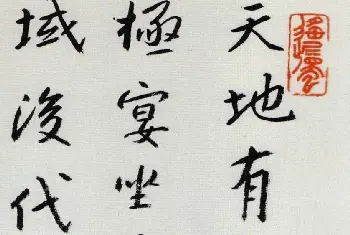 天地有
極宴坐
域後代